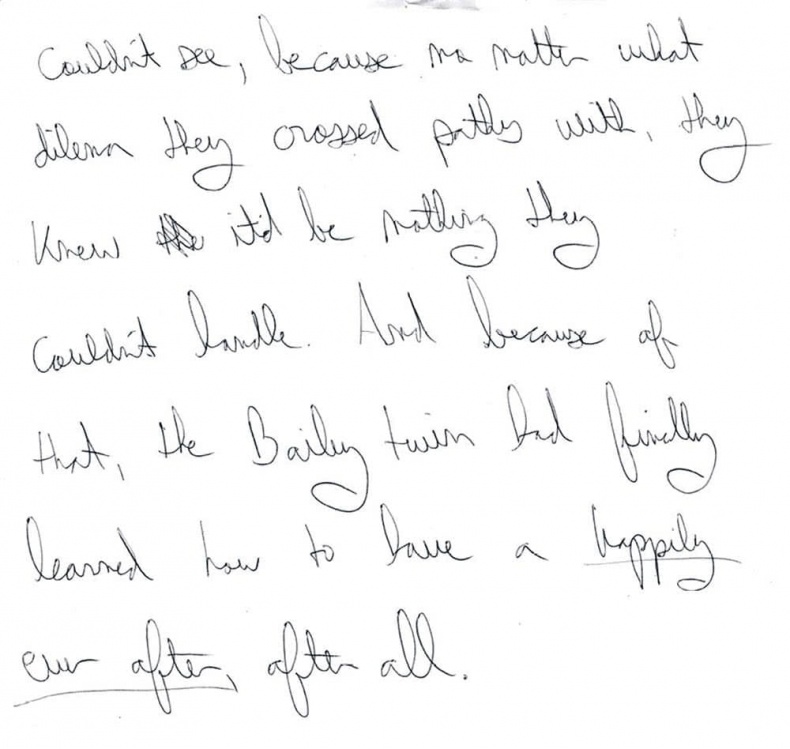 Couldn't see, because no matter what
dilema they crossed paths with, they
Knew it'd be nothing they
Couldn't handle. And because of
that, the Bailey twin had finally
learned how to have a happily
ever after, after all.